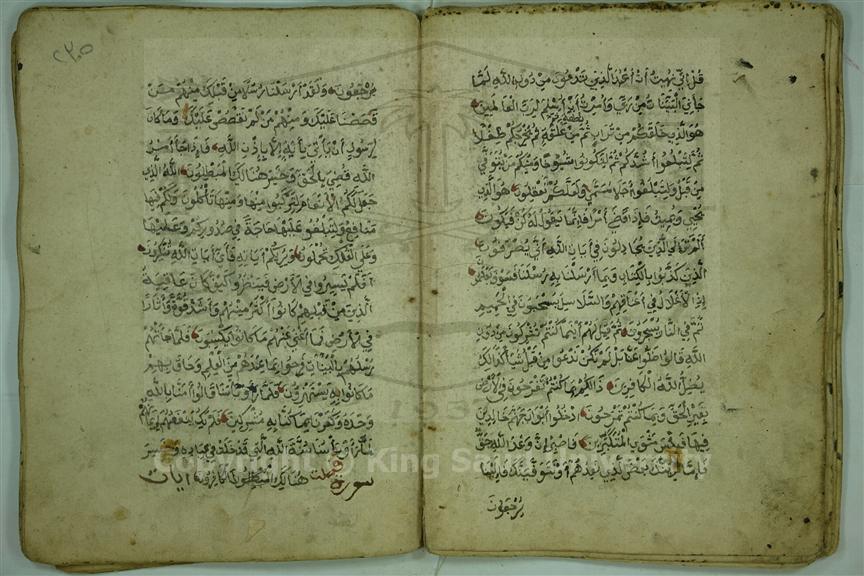 قل اني نهيت ان اعبد الذين تدعون من دون الله لما
جاءني البينات من ربي وامرت ان اسلم لرب العالمين
هو الذي خلقكم من تراب ثم من نطفة ثم من علقة ثم يخرجكم طفلا
ثم لتبلغوا اشدكم ثم لتكونوا شيوخا ومنكم من يتوفى
من قبل ولتبلغوا اجلا مسمى ولعلكم تعقلون هو الذي
يحيي ويميت فاذا قضى امرا فانما يقول له كن فيكون
الم تر الى الذين يجادلون في ايات الله انى يصرفون
الذين كذبوا بالكتاب وبما ارسلنا به رسلنا فسوف يعلمون
اذ الاغلال في اعناقهم والسلاسل يسحبون في الحميم
ثم في النار يسجرون ثم قيل لهم اينما كنتم تشركون من دون
الله قالوا ضلوا عنا بل لم نكن ندعوا من قبل شيئا كذلك
يضل الله الكافرين ذالكم بما كنتم تفرحون في الارض
بغير الحق وبما كنتم تمرحون ادخلوا ابواب جهنم خالدين
فيها فبئس مثوى المتكبرين فاصبر ان وعد الله حق
فاما نرينك بعض الذي نعدهم او نتوفينك فالينا
يرجعون
٢٣٠٥
يرجعون ولقد ارسلنا رسلا من قبلك منهم من
قصصنا عليك ومنهم من لم نقصص عليك وما كان
لرسول ان ياتي باية الا باذن الله فاذا جاء امر
الله قضي بالحق وخسر هنالك المبطلون الله الذي
جعل لكم الانعام لتركبوا منها ومنها تاكلون ولكم فيها
منافع ولتبلغوا عليها حاجة في صدوركم وعليها
وعلى الفلك تحملون ويريكم اياته فاي ايات الله تنكرون
افلم يسيروا في الارض فينظروا كيف كان عاقبة
الذين من قبلهم كانوا اكثر منهم واشد قوة واثارا
في الارض فما اغنى عنهم ما كانوا يكسبون فلما جاءتهم
رسلهم بالبينات فرحوا بما عندهم من العلم وحاق بهم
ما كانوا به يستهزؤن فلما راوا باسنا قالوا امنا بالله
وحده وكفرنا بما كنا به مشركين فلم يك ينفعهم ايمانهم
لما راوا باسنا سنة الله التي قد خلت في عباده وخسر
هنالك الكافرون سورة فصلت ايات
Copyright © King Saud University